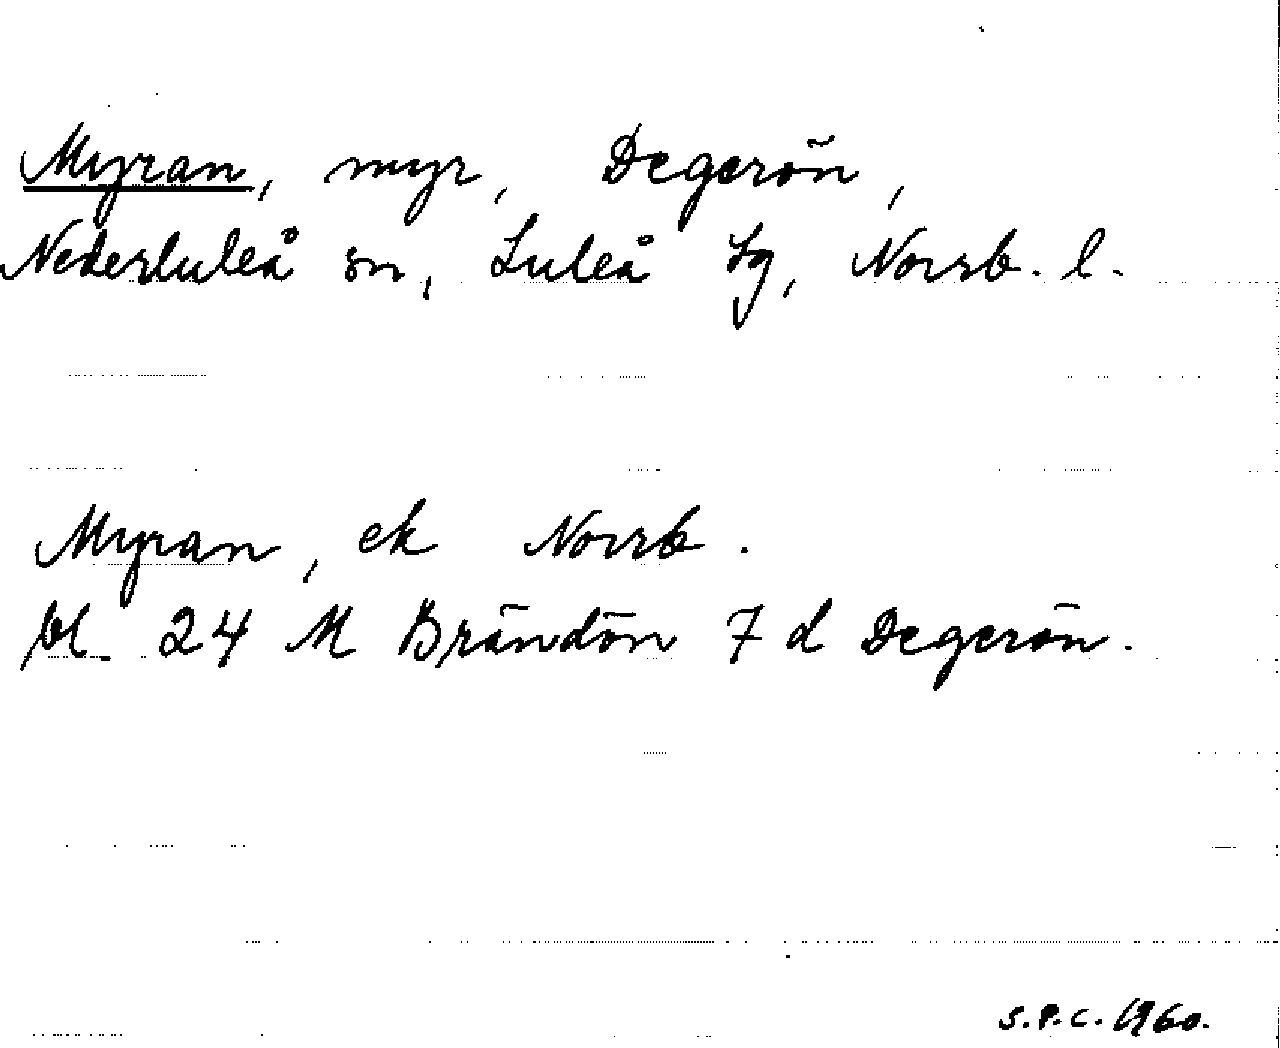 Myran, myr, Degerön,
Nederluleå sn, Luleå tg, Norrb. l.
Myran, ek Norrb.
Bl. 24 M Brändön 7 d Degerön.
S.P.C. 1960.